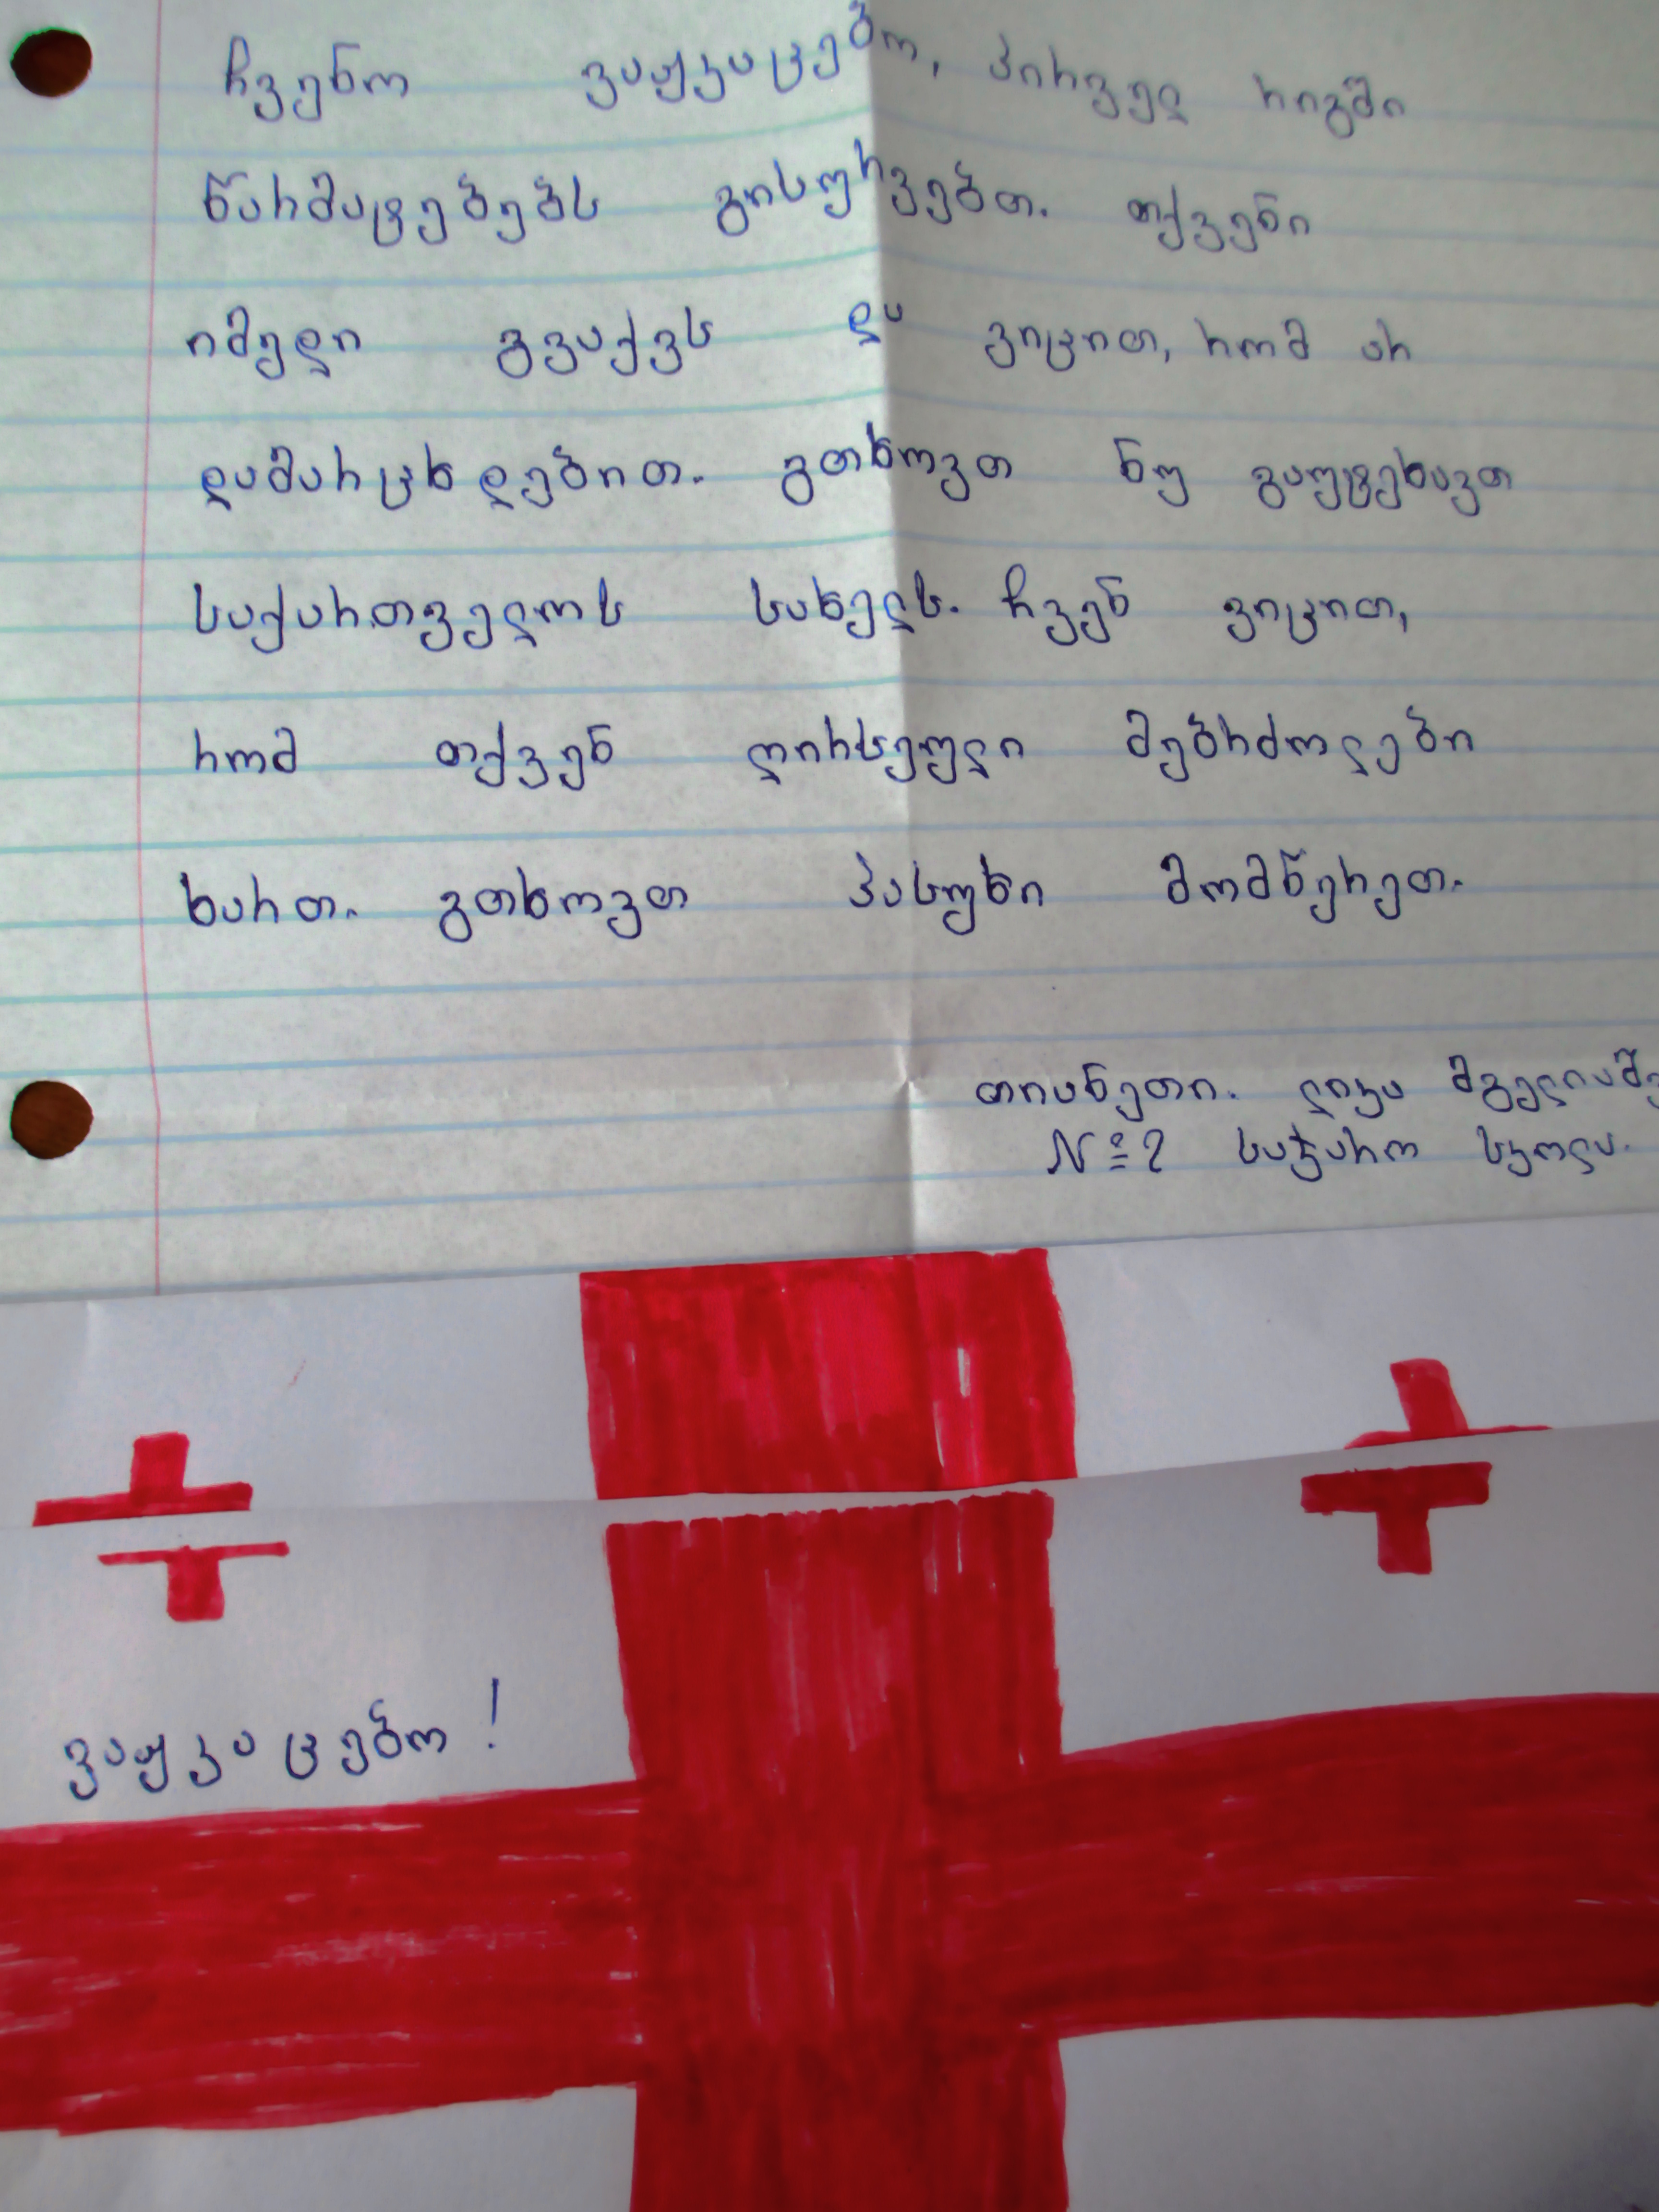 ჩვენო ვაჟკაცებო, პირველ რიგში
წარმატებებს გისურვებთ. თქვენი
იმედი გვაქვს და ვიცით, რომ არ
დამარცხდებით. გთხოვთ ნუ გაუტეხავთ
საქართველოს სახელს. ჩვენ ვიცით,
რომ თქვენ ღირსეული მებრძოლები
ხართ. გთხოვთ პასუხი მომწერეთ.
თიანეთი. ლიკა
№2 საჯარო სკოლა.
ვაჟკაცებო!